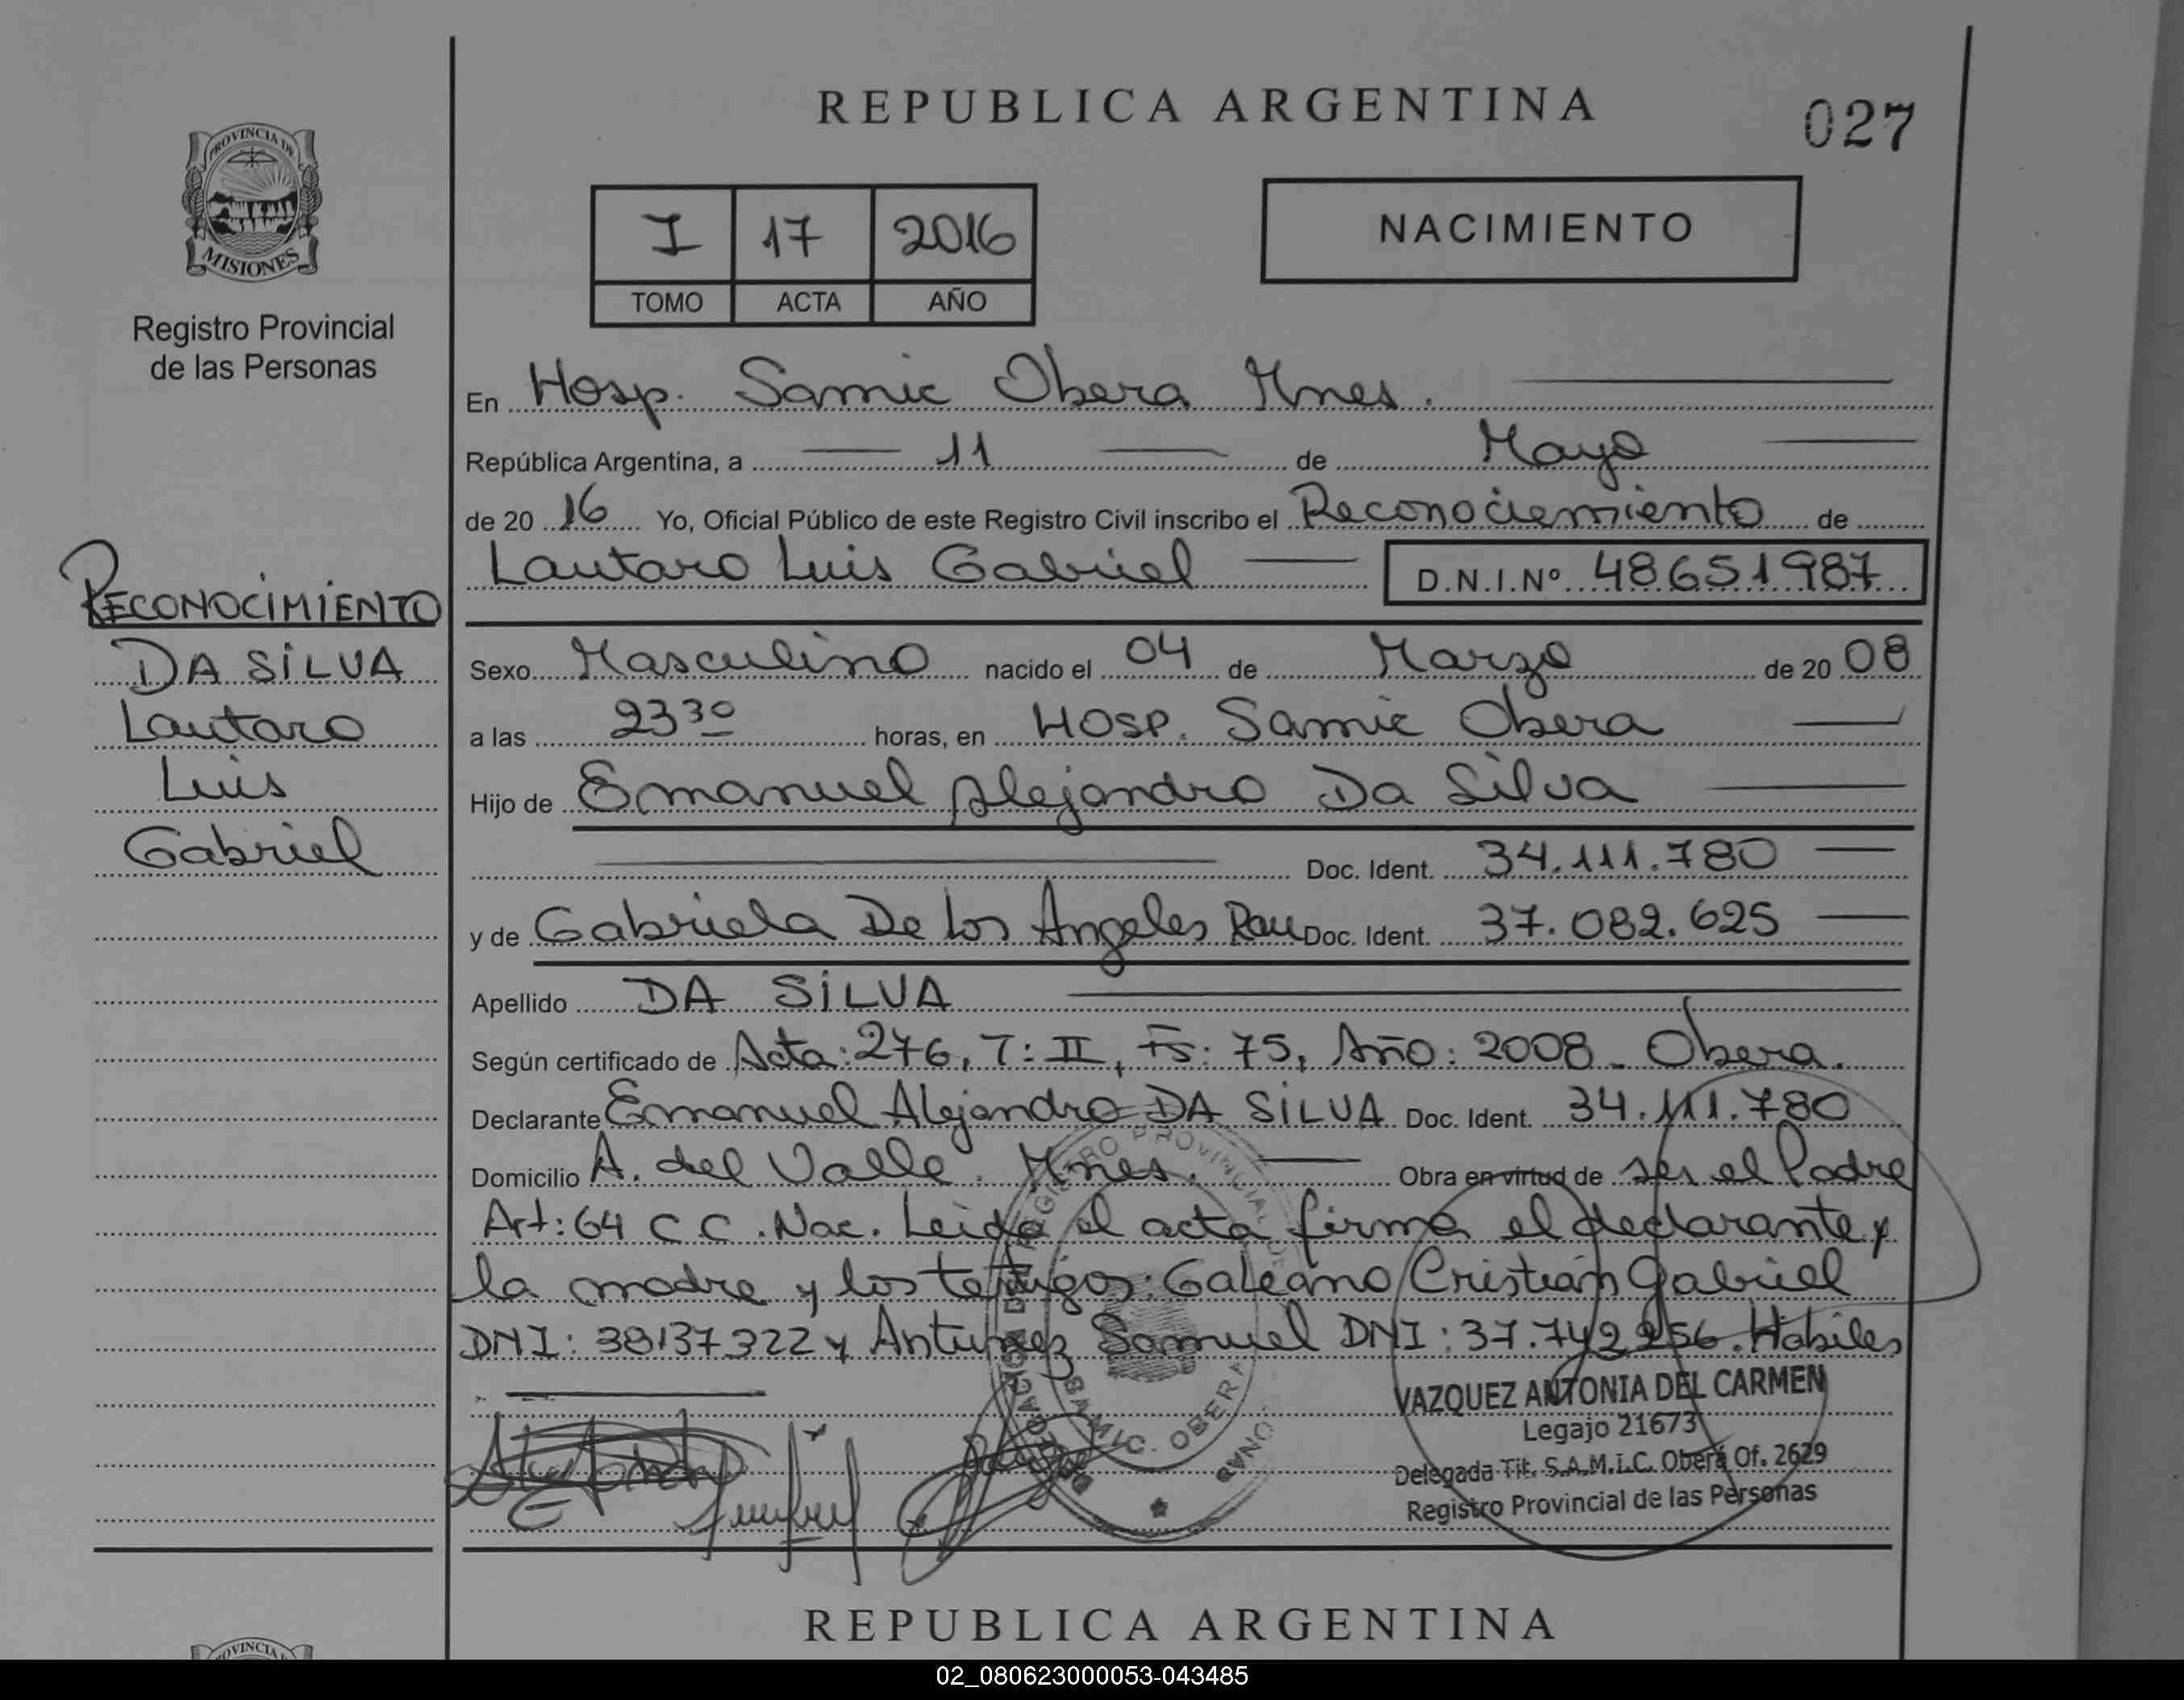 REPUBLICA ARGENTINA
027
PROVINCIA DE
MISIONES
Registro Provincial
de las Personas
I 17 2016
TOMO ACTA AÑO
NACIMIENTO
En Hosp. Samic Obera Mnes.
República Argentina, a 11 de Mayo
de 20 16 Yo, Oficial Público de este Registro Civil inscribo el Reconociemiento de
Lautaro Luis Gabriel D.N.I.Nº 48651987
RECONOCIMIENTO
DA SILVA
Lautaro
Luis
Gabriel
Sexo Masculino nacido el 04 de Marzo de 20 08
a las 23 30 horas, en Hosp. Samic Obera
Hijo de Emanuel Alejandro Da Silva
Doc. Ident. 34.111.780
y de Gabriela De Los Angeles Rau Doc. Ident. 37.082.625
Apellido DA SILVA
Según certificado de Acta: 276, T: II, Fs: 75, Año: 2008. Obera.
Declarante Emanuel Alejandro DA SILVA Doc. Ident. 34.111.780
Domicilio A. del Valle. Mnes. Obra en virtud de ser el Padre
Art: 64 C C. Nac. Leida el acta firma el declarante y
la madre y los testigos: Galeano Cristian Gabriel
DNI: 38137322 y Antunez Samuel DNI: 37.742256. Habiles
VAZQUEZ ANTONIA DEL CARMEN
Legajo 21673
Delegada Tit. S.A.M.I.C. Oberá Of. 2629
Registro Provincial de las Personas
REGISTRO PROVINCIAL
SAMIC. OBERA
REPUBLICA ARGENTINA
PROVINCIA
02_080623000053-043485